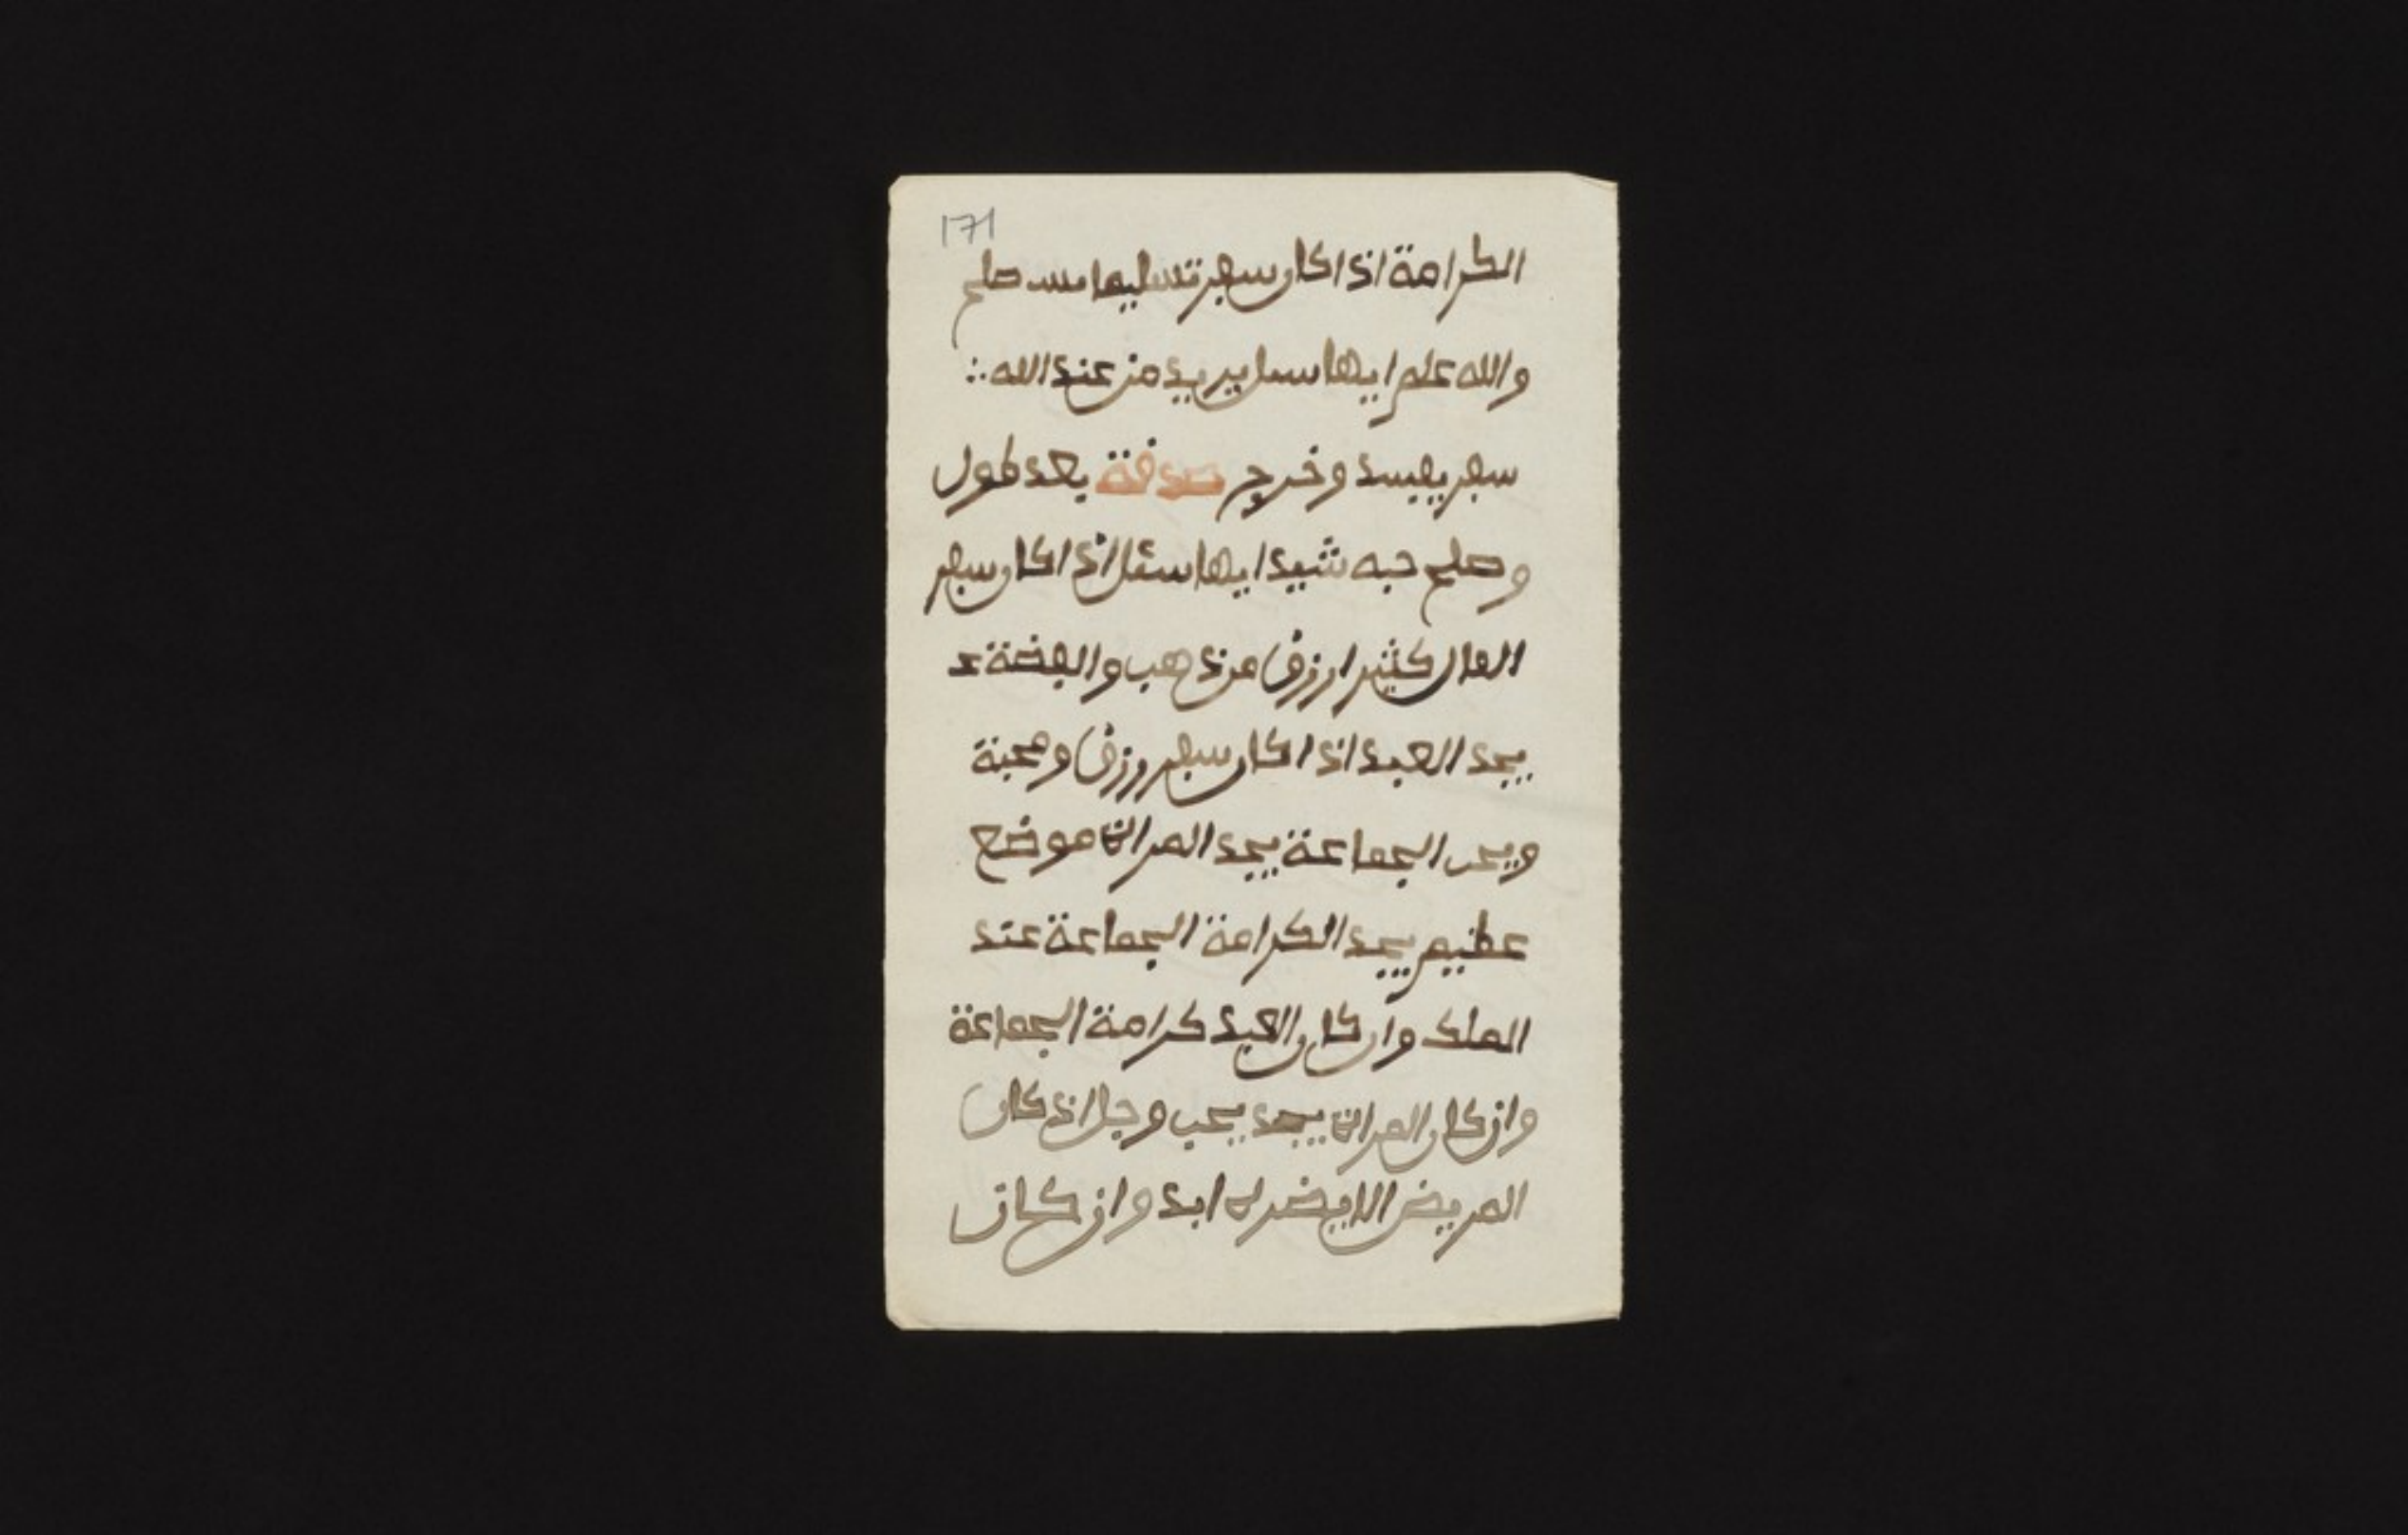 171
الكرامة اذا كان سفر تسليما صلح
والله علم ايها سيريد من عند الله
سفر يفسد وخرج صدقة بعد طول
وصلح حبه شيد ايها سئل اذا كان سفر
المال كثيرا رزق من ذهب والفضة
يجد العبد اذا كان سفر ورزق ومحبة
ويحب الجماعة يجد المراة موضع
عظيم يجد الكرامة الجماعة عند
الملك وان كان العبد كرامة الجماعة
وان كان المراة يجد يحب وجل اذ كان
المريض الا يضره ابد وان كان